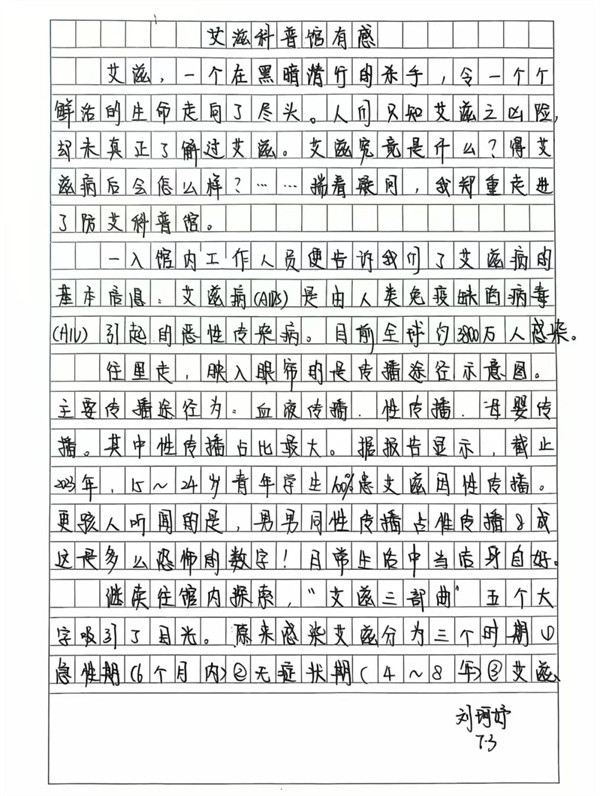 艾滋科普馆有感
艾滋，一个在黑暗潜行的杀手，令一个个
鲜活的生命走向了尽头。人们只知艾滋之凶险，
却未真正了解过艾滋。艾滋究竟是什么？得艾
滋病后会怎么样？……揣着疑问，我郑重走进
了防艾科普馆。
一入馆内工作人员便告诉我们了艾滋病的
基本信息：艾滋病(AIDS)是由人类免疫缺陷病毒
(HIV)引起的恶性传染病。目前全球约3800万人感染。
往里走，映入眼帘的是传播途径示意图。
主要传播途径为：血液传播、性传播、母婴传
播。其中性传播占比最大。据报告显示，截止
2023年，15～24岁青年学生100%患艾滋因性传播。
更骇人听闻的是，男男同性传播占性传播8成
这是多么恐怖的数字！日常生活中当洁身自好。
继续往馆内探索，“艾滋三部曲”五个大
字吸引了目光。原来感染艾滋分为三个时期①
急性期(6个月内)②无症状期(4～8年)③艾滋
刘珂妤
7.3